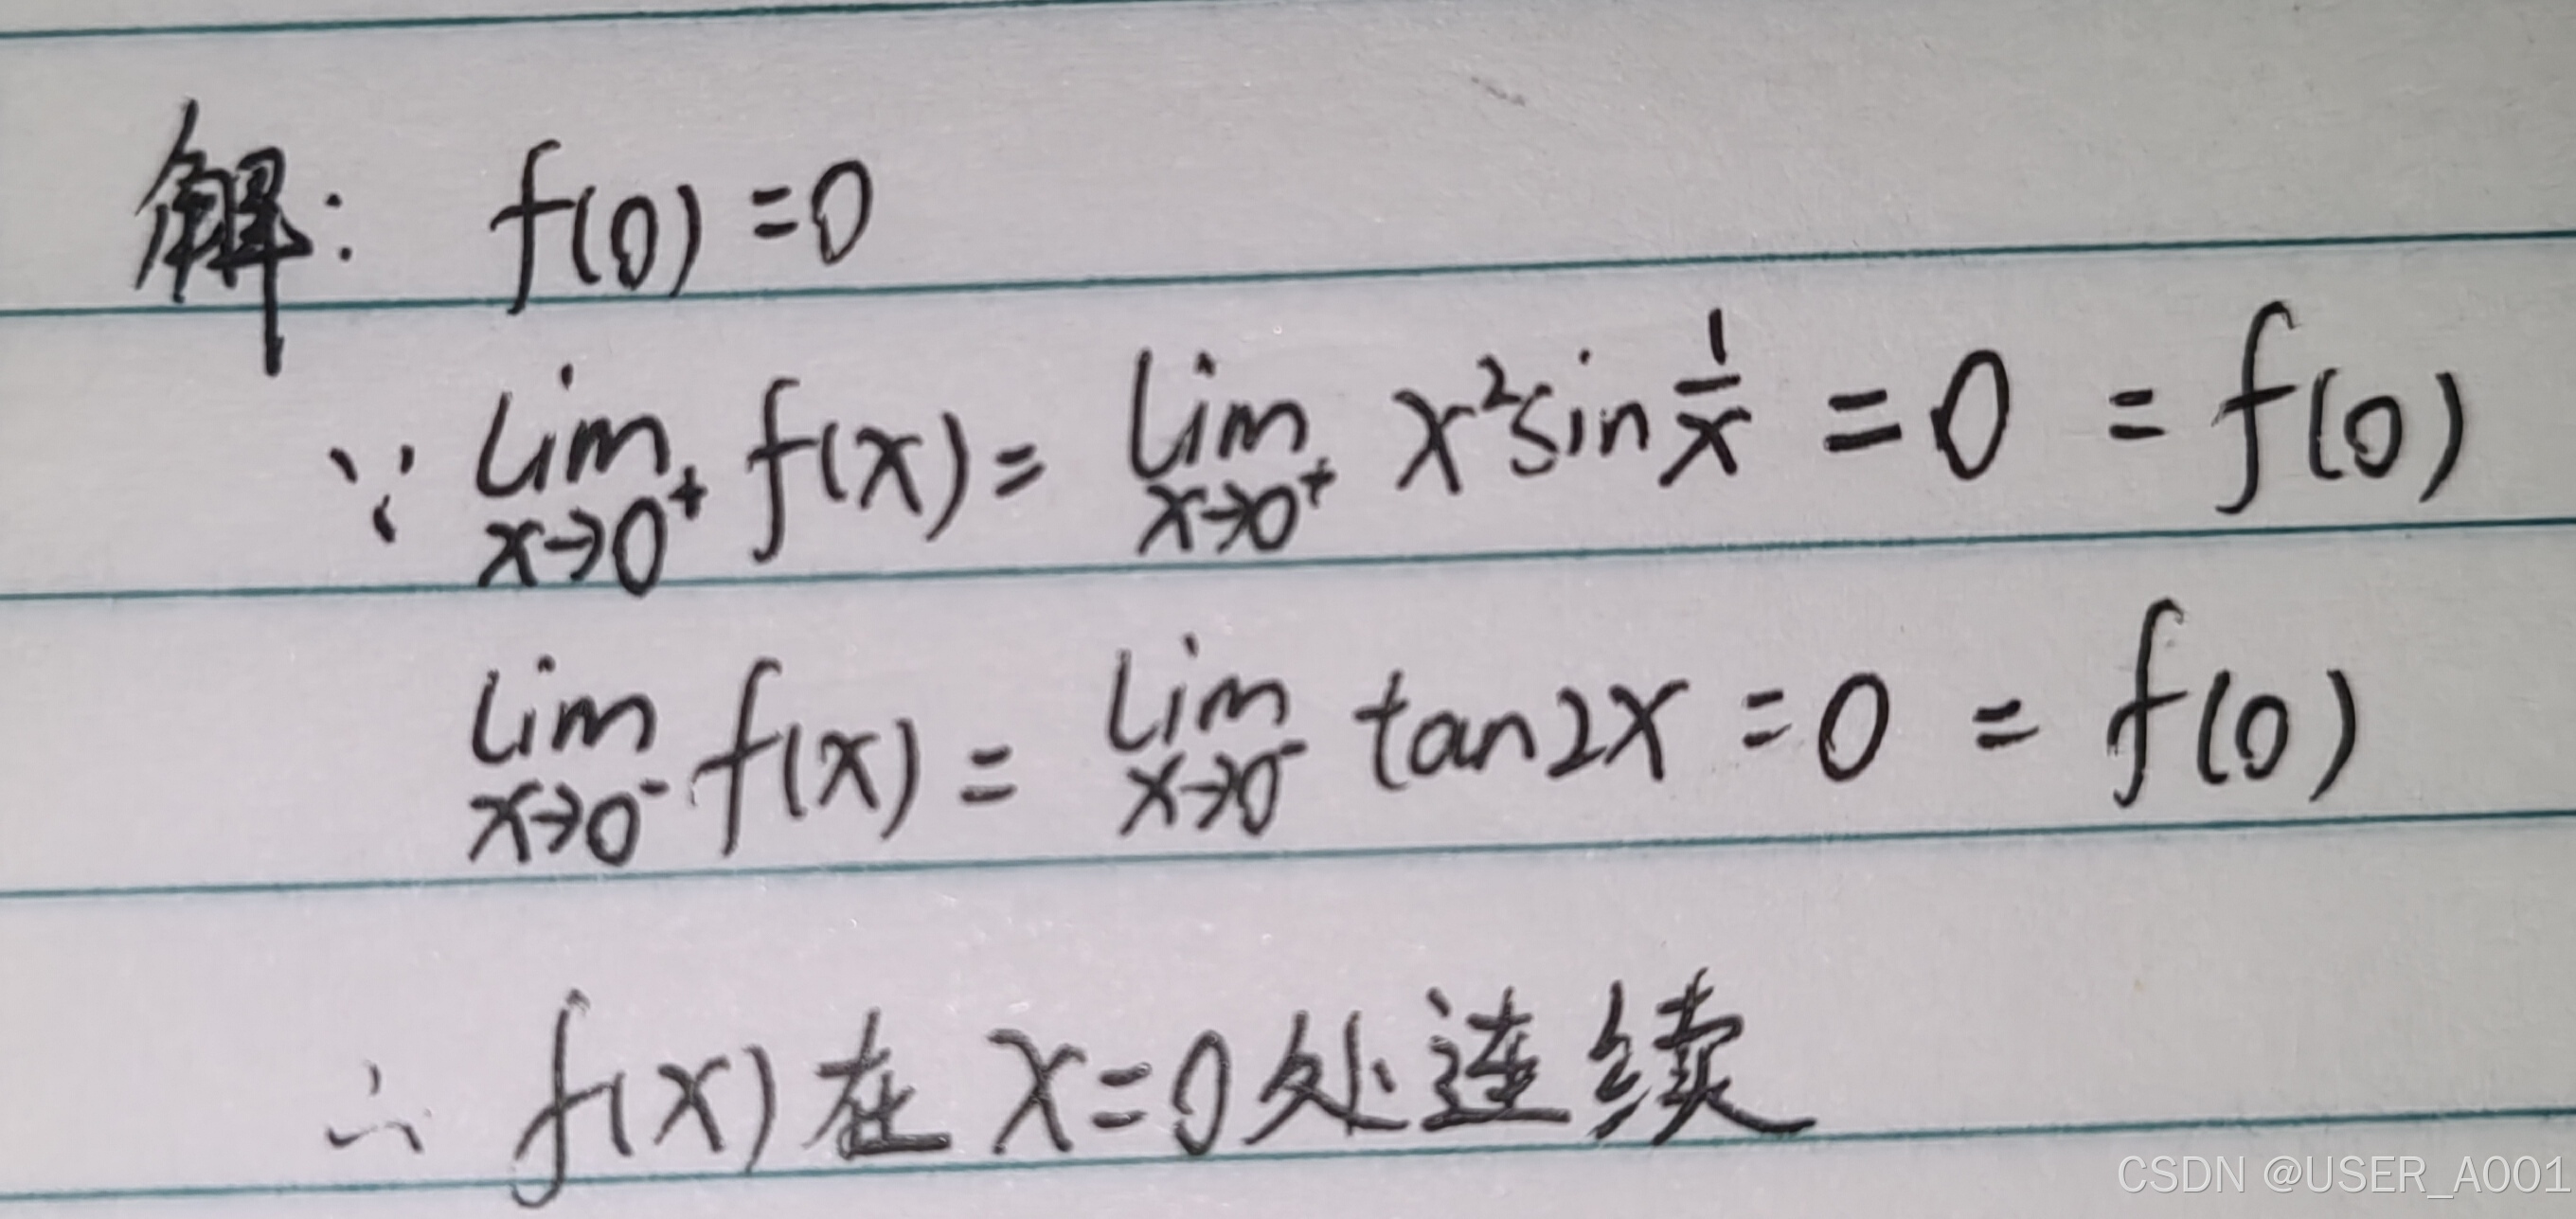 解: f(0)=0
∵ lim x→0⁺ f(x) = lim x→0⁺ x²sin 1/x = 0 = f(0)
lim x→0⁻ f(x) = lim x→0⁻ tan2x = 0 = f(0)
∴ f(x)在 x=0处连续
CSDN @USER_A001